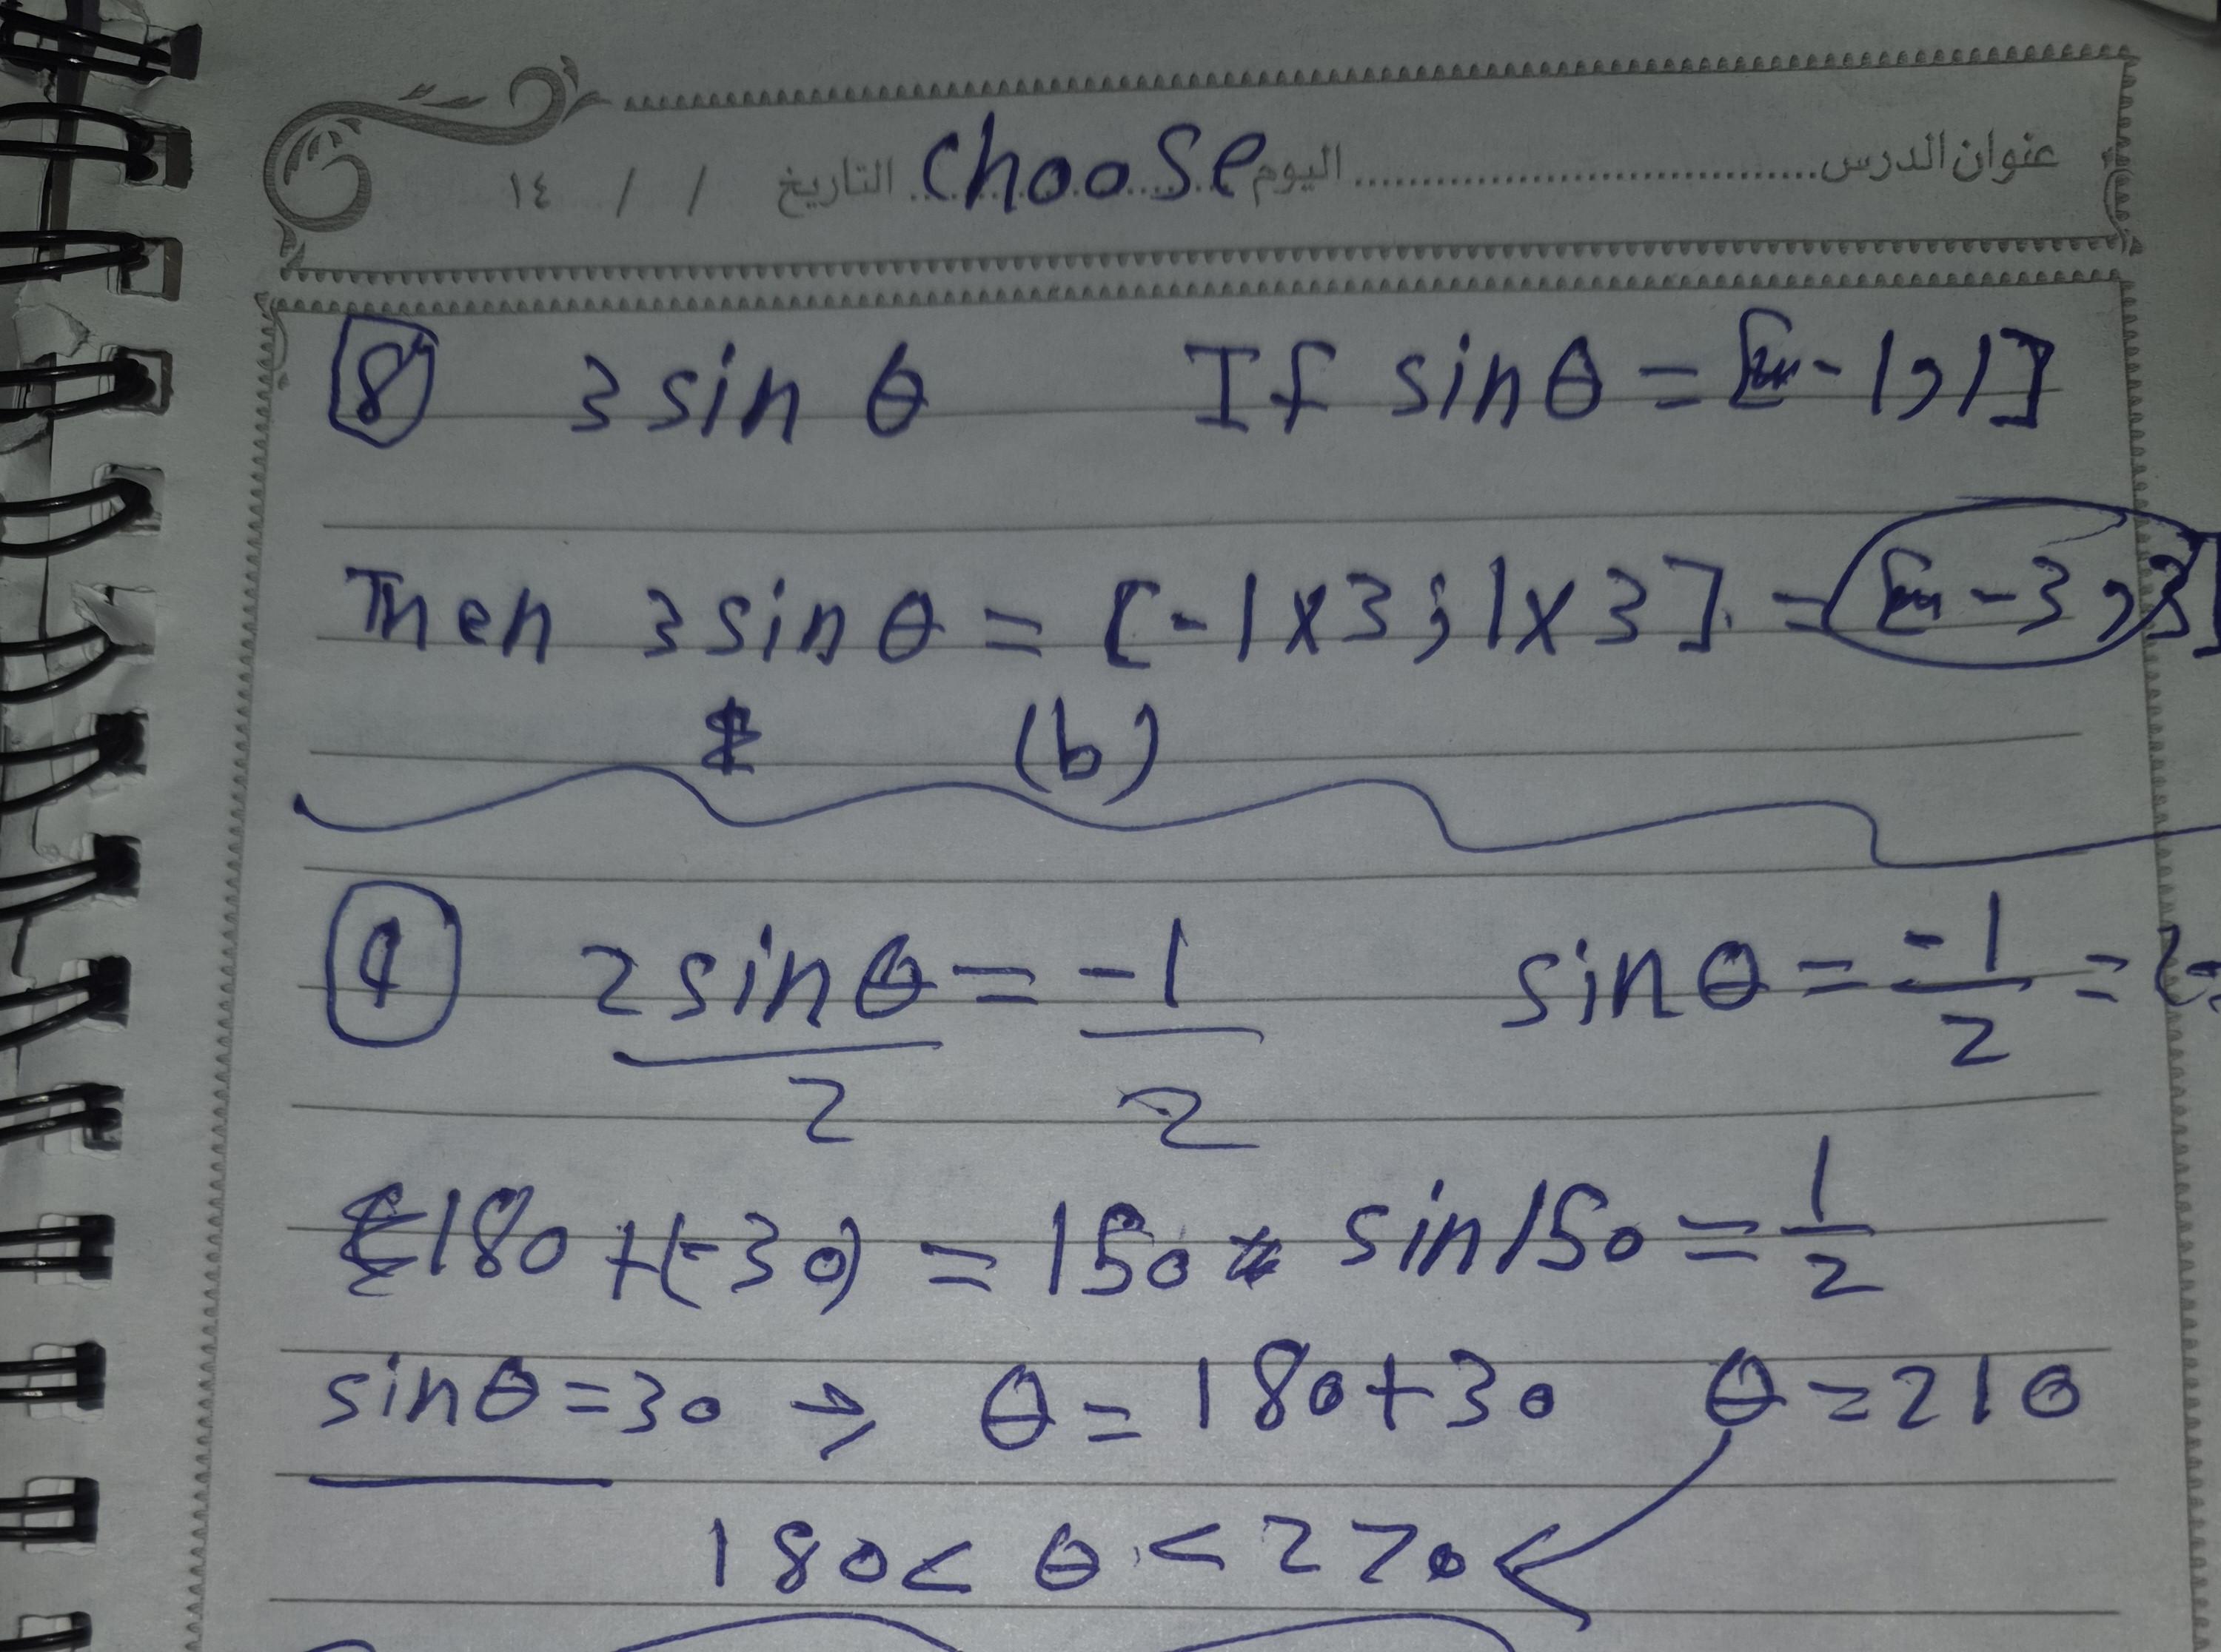 عنوان الدرس.................................اليوم Choose التاريخ / / ١٤
8 3 sin θ If sin θ = [-1,1]
Then 3 sin θ = [-1x3;1x3] = [-3,3]
(b)
9 2 sin θ / 2 = -1 / 2 sin θ = -1/2 =
180 +(-30) = 150 sin 150 = 1/2
sin θ = 30 → θ = 180+30 θ = 210
180 < θ < 270